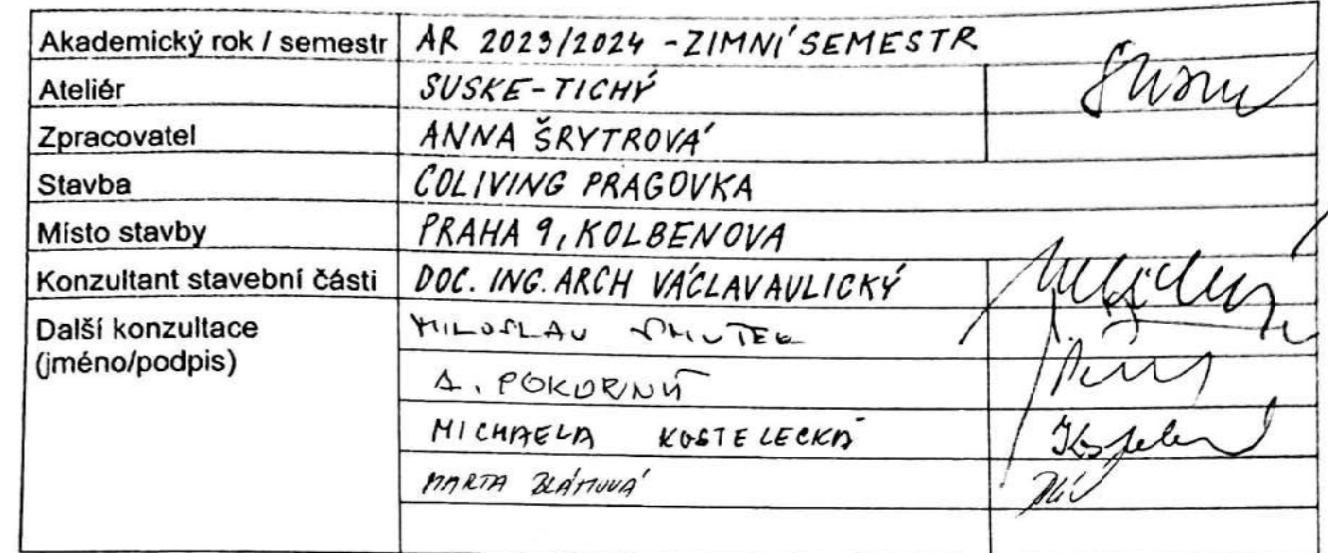 Akademický rok / semestr AR 2023/2024 - ZIMNÍ SEMESTR
Ateliér SUSKE - TICHÝ
Zpracovatel ANNA ŠRYTROVÁ
Stavba COLIVING PRAGOVKA
Místo stavby PRAHA 9, KOLBENOVA
Konzultant stavební části DOC. ING. ARCH VÁCLAV AULICKÝ
Další konzultace MILOSLAV SMUTEK
(jméno/podpis)
A. POKORNÝ
MICHAELA KOSTELECKÁ
MARTA BLÁHOVÁ